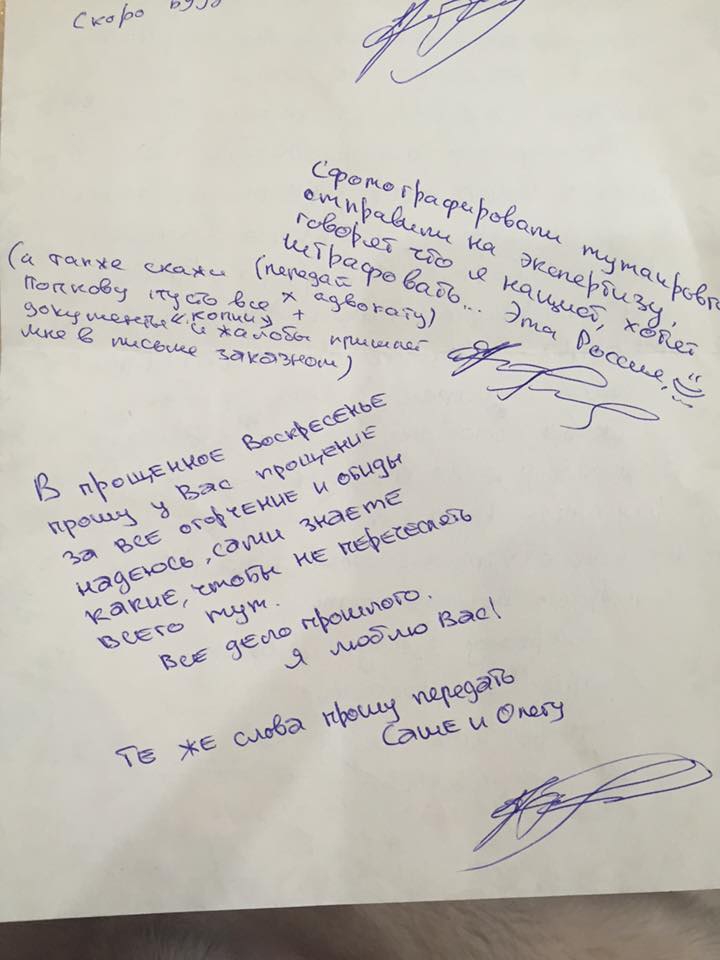 Скоро буд
Сфотографировали тутаировк
отправили на экспертизу,
говорят что я нацист, хотят
штрафовать... Эта Россия,
(а также скажи (передай
Попкову пусть все × адвокату)
документы "копии" +
и жалобы пришлёт
мне в письме заказном)
В прощенное Воскресенье
прошу у Вас прощение
за все огорчение и обиды
надеюсь, сами знаете
какие, чтобы не перечеслять
всего тут.
Все дело прошлого.
Я люблю Вас!
Те же слова прошу передать
Саше и Олегу